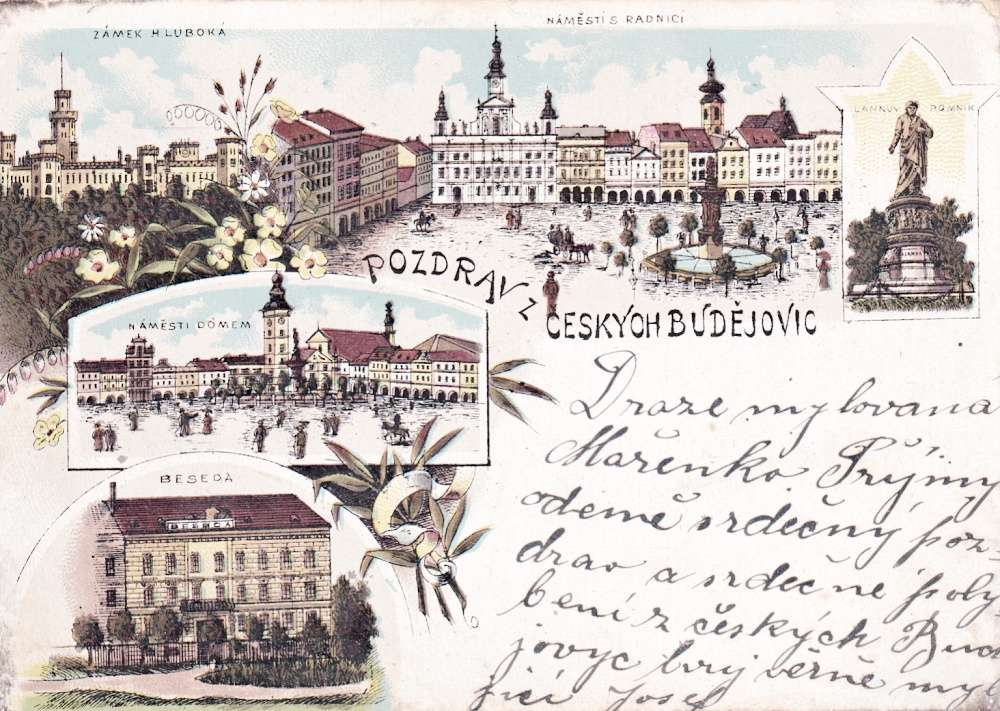 ZÁMEK HLUBOKÁ
NÁMĚSTÍ S RADNICÍ
LANNŮV POMNÍK
POZDRAV Z
ČESKÝCH BUDĚJOVIC
NÁMĚSTI DÓMEM
BESEDA
BESEDA
Draze mylovaná
Mařenko Prýmy
odemě srdečný poz-
drav a srdečné poly
bení z českých Bud
jovyc tvůj věrně my
jící Josef